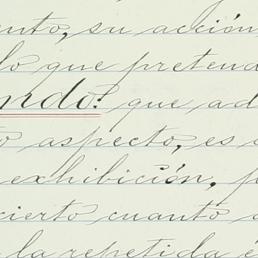 ento, su acción
lo que pretend
ndo: que ad
o aspecto, es
exhibición, p
cierto cuanto
la repetida é